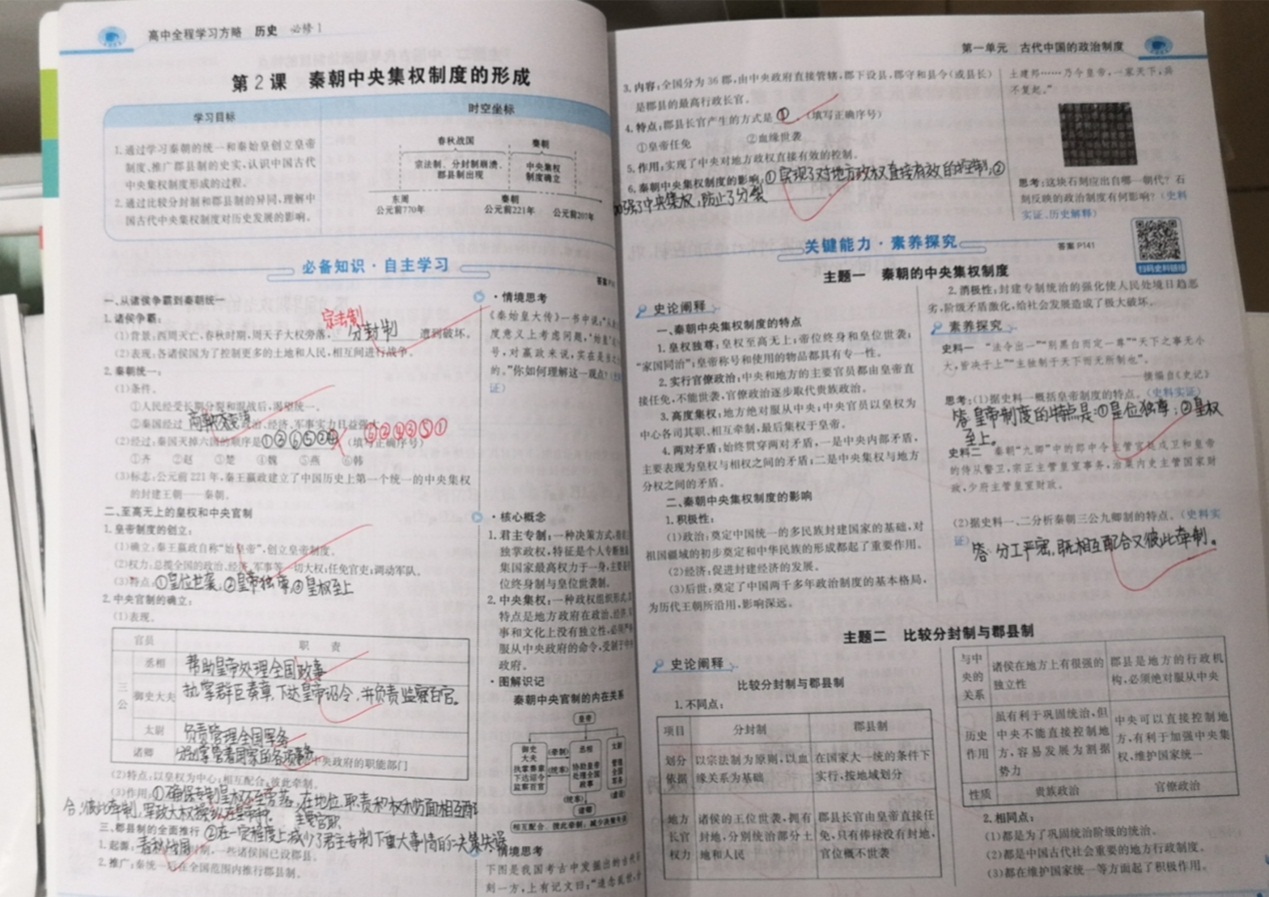 高中全程学习方略 历史 必修1
第2课 秦朝中央集权制度的形成
学习目标
1.通过学习秦朝的统一和秦始皇创立皇帝
制度、推广郡县制的史实,认识中国古代
中央集权制度形成的过程。
2.通过比较分封制和郡县制的异同,理解中
国古代中央集权制度对历史发展的影响。
时空坐标
春秋战国
秦朝
宗法制、分封制崩溃,
郡县制出现
中央集权
制度确立
东周
公元前770年
秦朝
公元前221年
公元前207年
必备知识·自主学习
一、从诸侯争霸到秦朝统一
1.诸侯争霸:
宗法制
(1)背景:西周灭亡,春秋时期,周天子大权旁落,分封制遭到破坏。
(2)表现:各诸侯国为了控制更多的土地和人民,相互间进行战争。
2.秦朝统一:
(1)条件。
①人民经受长期分裂和混战后,渴望统一。
②秦国经过商鞅变法,政治、经济、军事实力日益强
(2)经过:秦灭掉六国的顺序是 (填写正确序号)
①齐 ②赵 ③楚 ④魏 ⑤燕 ⑥韩
(3)标志:公元前221年,秦王嬴政建立了中国历史上第一个统一的中央集权
的封建王朝——秦朝。
二、至高无上的皇权和中央官制
1.皇帝制度的创立:
(1)确立:秦王嬴政自称“始皇帝”,创立皇帝制度。
(2)权力:总揽全国的政治、经济、军事等一切大权;任免官吏;调动军队。
(3)特点:①皇位世袭,②皇帝独尊,③皇权至上
2.中央官制的确立:
(1)表现。
官员 职责
三公
丞相 帮助皇帝处理全国政事
御史大夫 执掌群臣奏章,下达皇帝诏令,并负责监察百官。
太尉 负责管理全国军务
诸卿 分别掌管着国家的各项事务 中央政府的职能部门
(2)特点:以皇权为中心;相互配合,彼此牵制。
三、郡县制的全面推行
②在一定程度上减少了君主专制下重大事情的决策失误
1.起源:春秋战国时期,一些诸侯国已设郡县。
2.推广:秦统一后在全国范围内推行郡县制。
·情境思考
《秦始皇大传》一书中说:
度意义上考虑问题,
号,对嬴政来说,实在是
的。”你如何理解这一观点?
证)
·核心概念
1.君主专制:一种决策方式,
独掌政权,特征是个人专断独
集国家最高权力于一身,主要
位终身制与皇位世袭制。
2.中央集权:一种政权组织形式,
特点是地方政府在政治、经济、
事和文化上没有独立性,必须严
服从中央政府的命令,受制于中央
政府。
·图解识记
秦朝中央官制的内在关系
皇帝
御史大夫
执掌奏章
下达诏令
监察百官
丞相
协助皇帝处理全国政事
太尉
管理全国军务
诸卿
相互配合,彼此牵制,减少决策失误
·情境思考
下图是我国考古中发掘出的
刻一方,上有记文曰:“
第一单元 古代中国的政治制度
3.内容:全国分为36郡,由中央政府直接管辖,郡下设县,郡守和县令(或县长)
是郡县的最高行政长官。
4.特点:郡县长官产生的方式是①。(填写正确序号)
①皇帝任免 ②血缘世袭
5.作用:实现了中央对地方政权直接有效的控制。
6.秦朝中央集权制度的影响:①实现了对地方政权直接有效的控制,②
加强了中央集权,防止了分裂
土建邦……乃今皇帝,一家天下,兵
不复起。”
思考:这块石刻应出自哪一朝代?石
刻反映的政治制度有何影响?(史料
实证、历史解释)
关键能力·素养探究
答案P141
扫码史料链接
主题一 秦朝的中央集权制度
史论阐释
一、秦朝中央集权制度的特点
1.皇权独尊:皇权至高无上;帝位终身和皇位世袭;
“家国同治”;皇帝称号和使用的物品都具有专一性。
2.实行官僚政治:中央和地方的主要官员都由皇帝直
接任免,不能世袭,官僚政治逐步取代贵族政治。
3.高度集权:地方绝对服从中央;中央官员以皇权为
中心各司其职,相互牵制,最后集权于皇帝。
4.两对矛盾:始终贯穿两对矛盾,一是中央内部矛盾,
主要表现为皇权与相权之间的矛盾;二是中央集权与地方
分权之间的矛盾。
二、秦朝中央集权制度的影响
1.积极性:
(1)政治:奠定中国统一的多民族封建国家的基础,对
祖国疆域的初步奠定和中华民族的形成都起了重要作用。
(2)经济:促进封建经济的发展。
(3)后世:奠定了中国两千多年政治制度的基本格局,
为历代王朝所沿用,影响深远。
2.消极性:封建专制统治的强化使人民处境日趋恶
劣,阶级矛盾激化,给社会发展造成了极大破坏。
素养探究
史料一 “法令出一”“别黑白而定一尊”“天下之事无小
大,皆决于上”“主独制于天下而无所制也”。
——摘编自《史记》
思考:(1)据史料一概括皇帝制度的特点。(史料实证)
答:皇帝制度的特点是:①皇位独尊;②皇权
至上。
史料二 秦朝“九卿”中的郎中令主管宫廷戍卫和皇帝
的侍从警卫,宗正主管皇室事务,治粟内史主管国家财
政,少府主管皇室财政。
(2)据史料一、二分析秦朝三公九卿制的特点。(史料实
证)
答:分工严密,既相互配合又彼此牵制。
主题二 比较分封制与郡县制
史论阐释
比较分封制与郡县制
1.不同点:
项目 分封制 郡县制
划分依据 以宗法制为原则,以血缘关系为基础 在国家大一统的条件下实行,按地域划分
地方长官权力 诸侯的王位世袭,拥有封地,分别统治部分土地和人民 郡县长官由皇帝直接任免,只有俸禄没有封地,官位概不世袭
与中央的关系 诸侯在地方上有很强的独立性 郡县是地方的行政机构,必须绝对服从中央
历史作用 虽有利于巩固统治,但中央不能直接控制地方,容易发展为割据势力 中央可以直接控制地方,有利于加强中央集权,维护国家统一
性质 贵族政治 官僚政治
2.相同点:
(1)都是为了巩固统治阶级的统治。
(2)都是中国古代社会重要的地方行政制度。
(3)都在维护国家统一等方面起了积极作用。